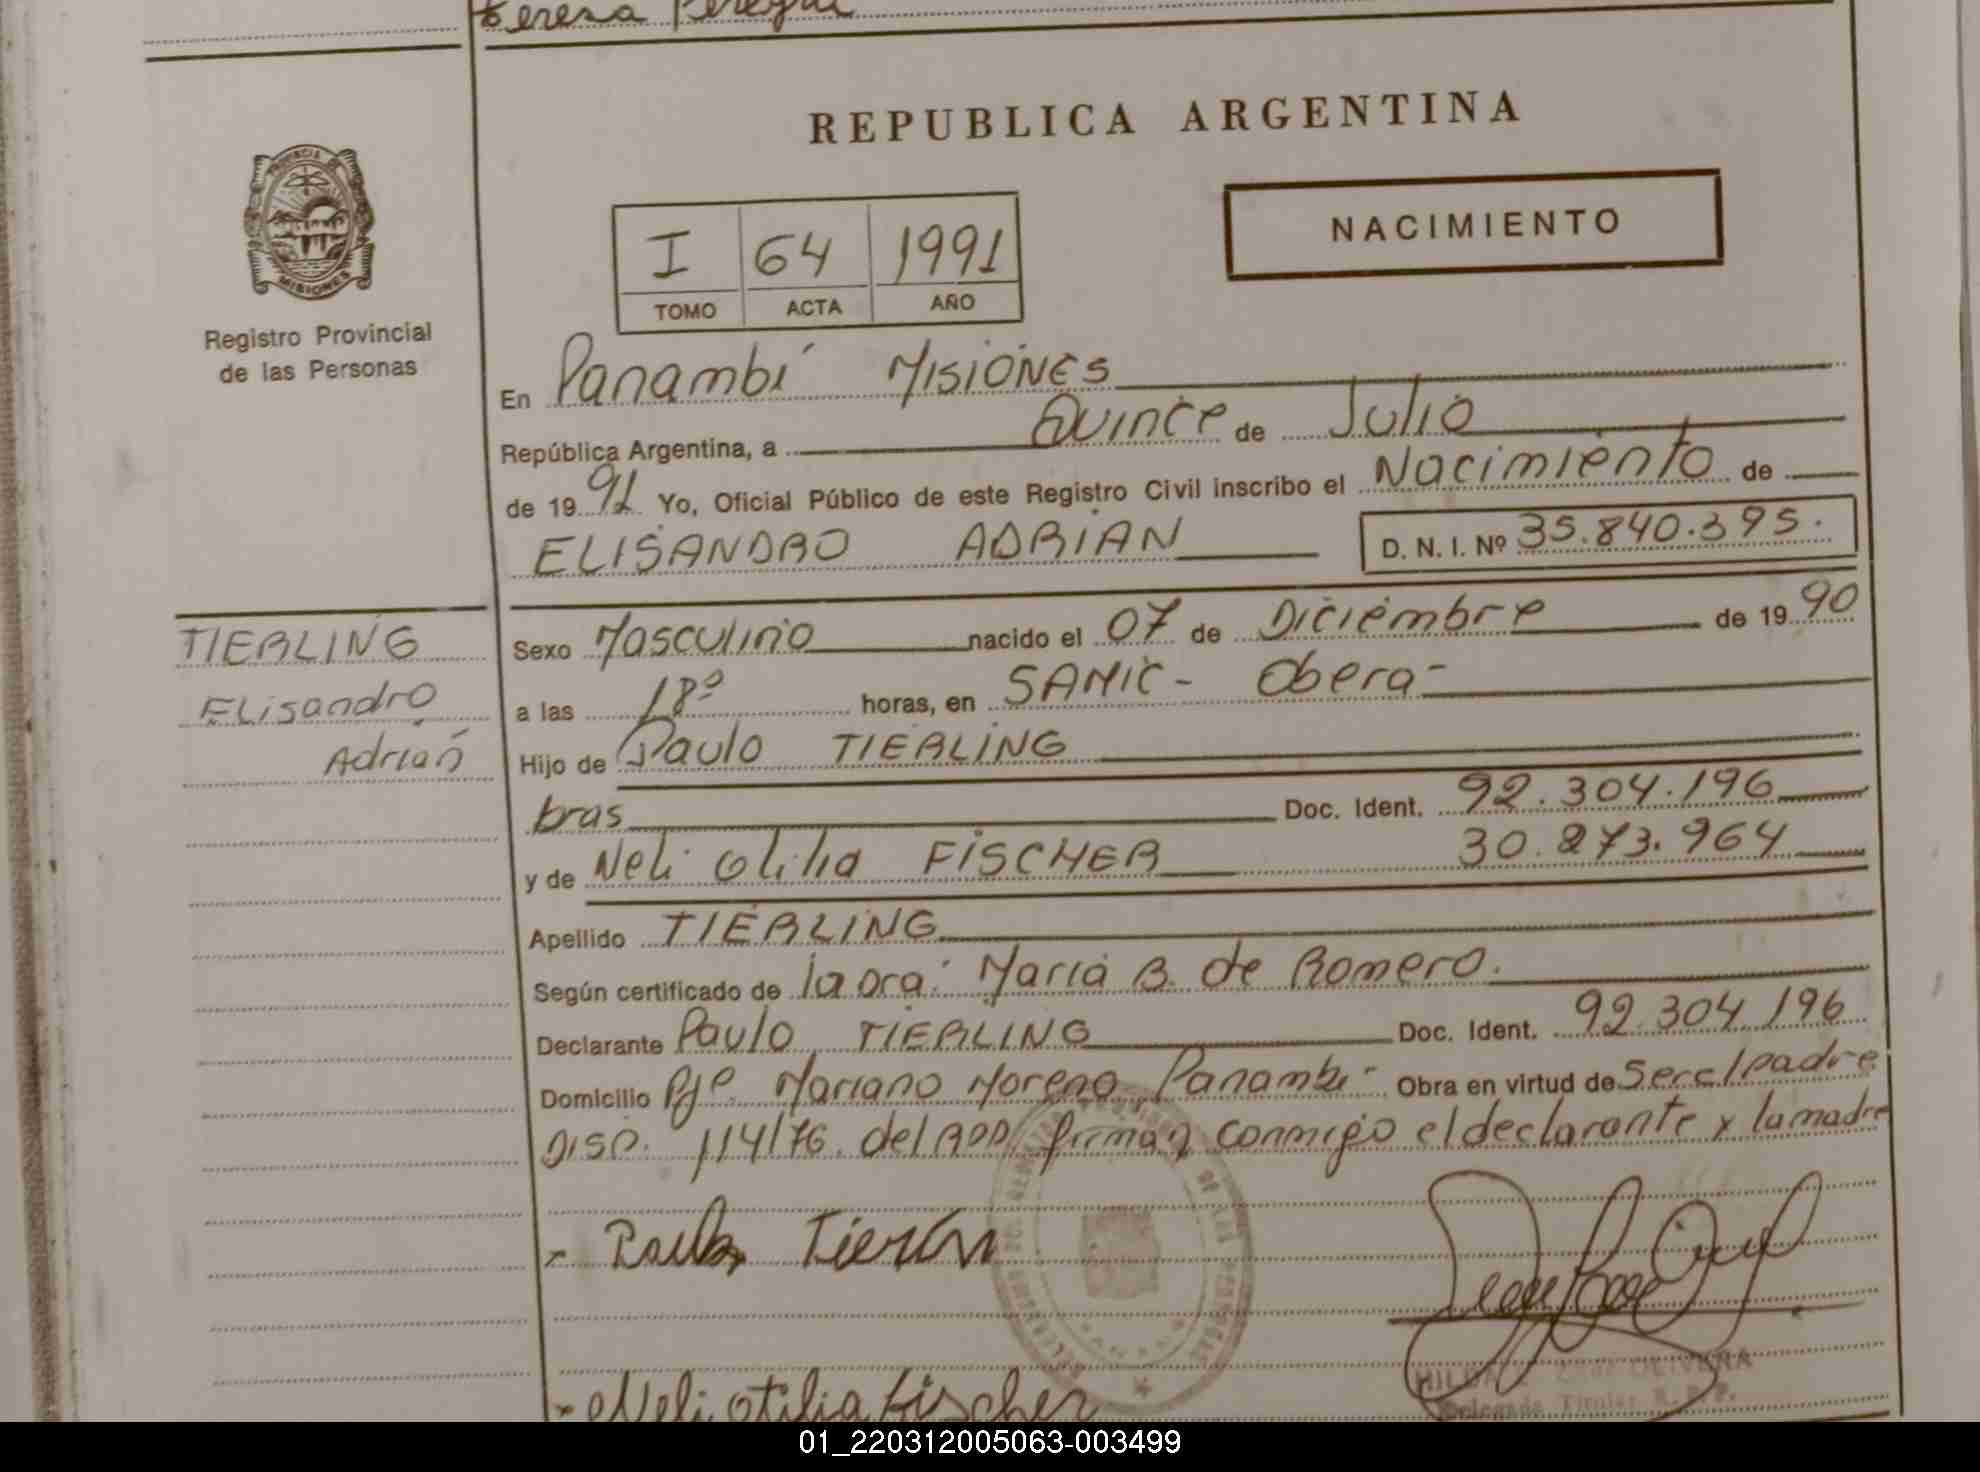 Teresa Pereyra
REPUBLICA ARGENTINA
PROVINCIA DE
MISIONES
Registro Provincial
de las Personas
NACIMIENTO
I 64 1991
TOMO ACTA AÑO
En Panambí Misiones
República Argentina, a Quince de Julio
de 1991 Yo, Oficial Público de este Registro Civil inscribo el Nacimiento de
ELISANDRO ADRIAN D. N. I. Nº 35.840.395.
TIERLING
Elisandro
Adrian
Sexo Masculino nacido el 07 de Diciembre de 1990
a las 18º horas, en SAMIC - Obera -
Hijo de Paulo TIERLING
bras Doc. Ident. 92.304.196
y de Neli Otilia FISCHER 30.273.964
Apellido TIERLING
Según certificado de la Dra: Maria B. de Romero.
Declarante Paulo TIERLING Doc. Ident. 92.304.196
Domicilio Pje. Mariano Moreno Panambi - Obra en virtud de Ser el padre
DISP. 114/76. del RPP/ firman conmigo el declarante y la madre
Neli Otilia Fischer
HILDA OLIVERA
Delegada Titular R. P. P.
01_220312005063-003499